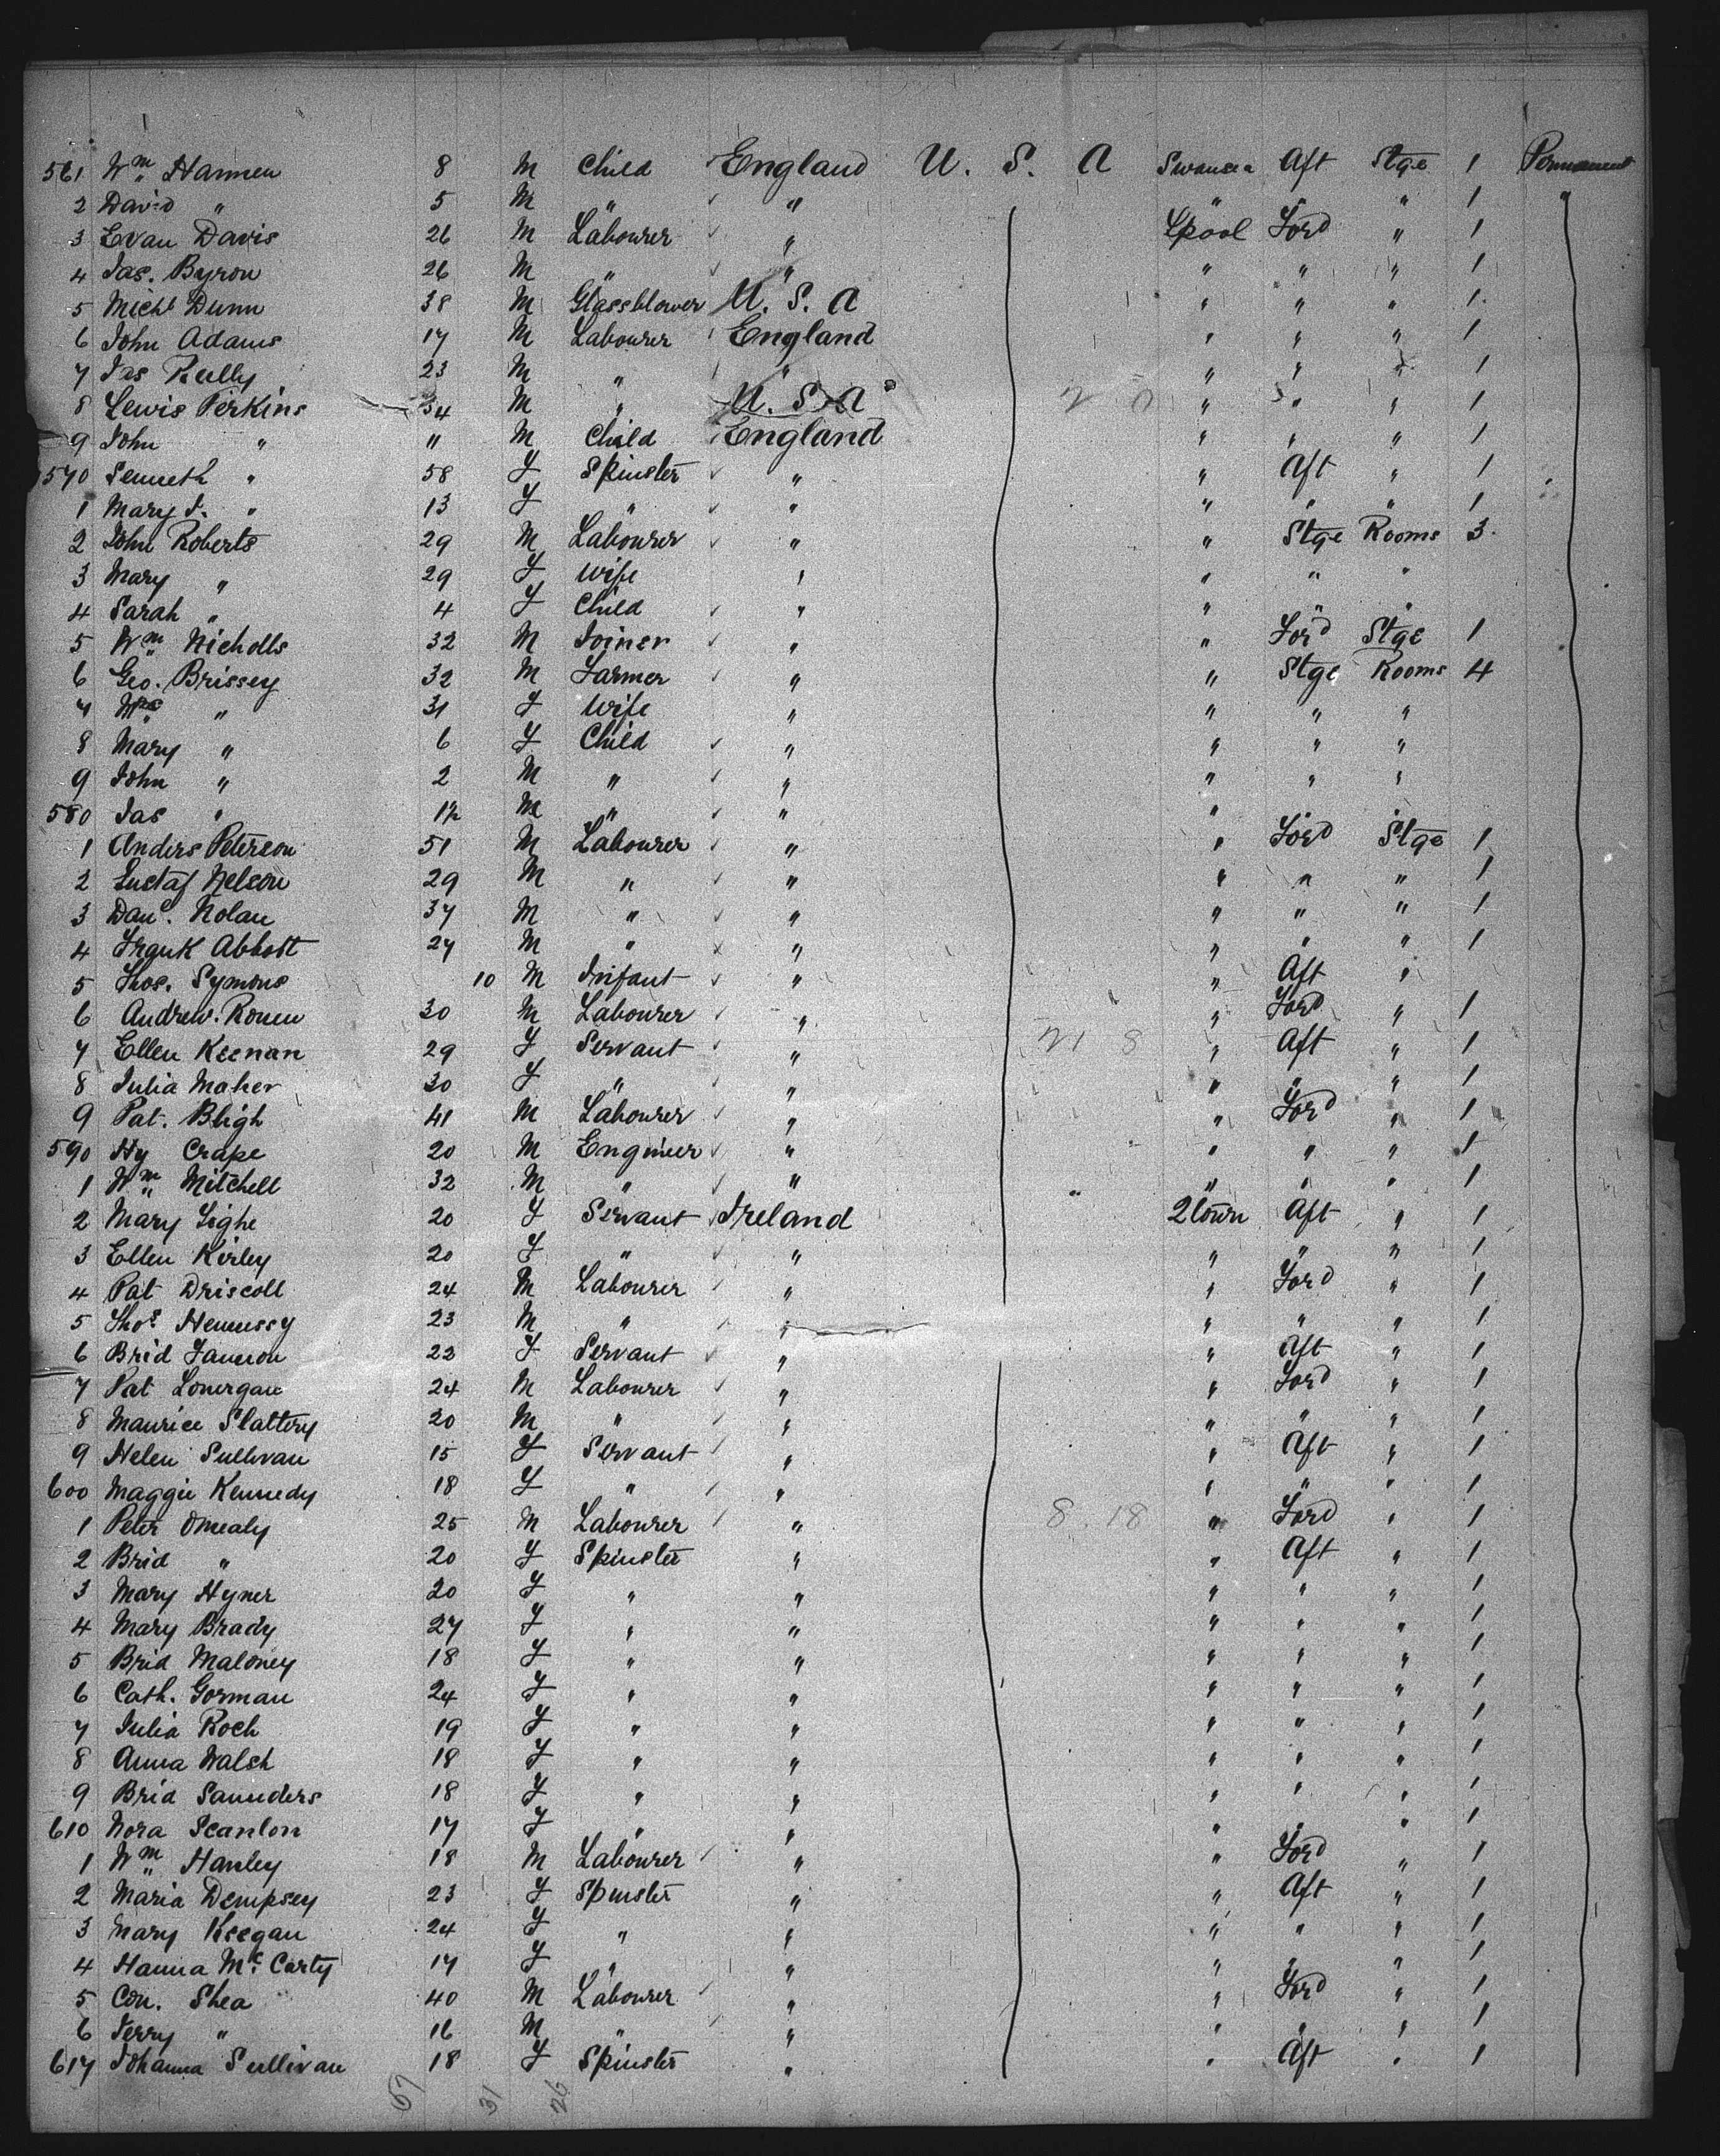 561 Wm Hannen 8 M Child England U. S. A Swansea Aft Stge 1 Permanent
2 David " 5 M " " " " " 1 "
3 Evan Davis 26 M Labourer " Lpool Ford " 1
4 Jas. Byron 26 M " " " " " 1
5 Michl Dunn 38 M Glassblower U. S. A " " " 1
6 John Adams 17 M Labourer England " " " 1
7 Jas Reilly 23 M " " " " " 1
8 Lewis Perkins 34 M " U. S. A " " " 1
9 John " " M Child England " " " 1
570 Senneth " 58 F Spinster " " Aft " 1
1 Mary J. " 13 F " " " " " 1
2 John Roberts 29 M Labourer " " Stge Rooms 3
3 Mary " 29 F Wife " " " "
4 Sarah " 4 F Child " " " "
5 Wm Nicholls 32 M Joiner " " Ford Stge 1
6 Geo. Brissey 32 M Farmer " " Stge Rooms 4
7 Mrs " 31 F Wife " " " "
8 Mary " 6 F Child " " " "
9 John " 2 M " " " " "
580 Jas " M " " " "
1 Anders Peterson 51 M Labourer " " Ford Stge 1
2 Gustaf Nelson 29 M " " " " " 1
3 Danl. Nolan 37 M " " " " " 1
4 Frank Abbott 27 M " " " " " 1
5 Thos. Symons 10 M Infant " " Aft "
6 Andrew. Ronen 30 M Labourer " " Ford " 1
7 Ellen Keenan 29 F Servant " 21 8 " Aft " 1
8 Julia Maher 30 F " " " " " 1
9 Pat. Bligh 41 M Labourer " " Ford " 1
590 Hy Crape 20 M Engineer " " " " 1
1 Wm Mitchell 32 M " " " " " 1
2 Mary Tighe 20 F Servant Ireland Qtown Aft " 1
3 Ellen Kirley 20 F " " " " " 1
4 Pat Driscoll 24 M Labourer " " Ford " 1
5 Thos Hennessy 23 M " " " " " 1
6 Brid Fannon 22 F Servant " " Aft " 1
7 Pat Lonergan 24 M Labourer " " Ford " 1
8 Maurice Slattery 20 M " " " " " 1
9 Helen Sullivan 15 F Servant " " Aft " 1
600 Maggie Kennedy 18 F " " " " " 1
1 Peter Omealy 25 M Labourer " 8. 18 " Ford " 1
2 Brid " 20 F Spinster " " Aft " 1
3 Mary Hyner 20 F " " " " " 1
4 Mary Brady 27 F " " " " " 1
5 Brid Maloney 18 F " " " " " 1
6 Cath. Gorman 24 F " " " " " 1
7 Julia Roch 19 F " " " " " 1
8 Anna Walsh 18 F " " " " " 1
9 Brid Saunders 18 F " " " " " 1
610 Nora Scanlon 17 F " " " " " 1
1 Wm Hanley 18 M Labourer " " Ford " 1
2 Maria Dempsey 23 F Spinster " " Aft " 1
3 Mary Keegan 24 F " " " " " 1
4 Hanna Mc Carty 17 F " " " " " 1
5 Con. Shea 40 M Labourer " " Ford " 1
6 Jerry " 16 M " " " " " 1
617 Johanna Sullivan 18 F Spinster " " Aft " 1
57 31 26